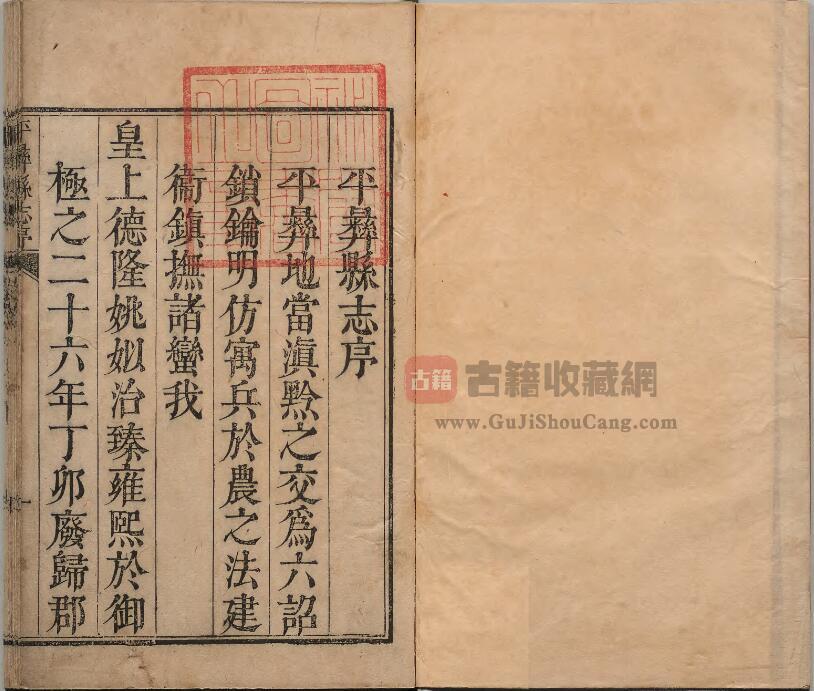 平彜縣志序
平彜地當滇黔之交爲六詔
鎖鑰明仿寓兵於農之法建
衞鎮撫諸蠻我
皇上德隆姚姒治臻雍熙於御
極之二十六年丁卯廢歸郡
平彜縣志序
一
古籍
古籍收藏網
www.GuJiShouCang.com